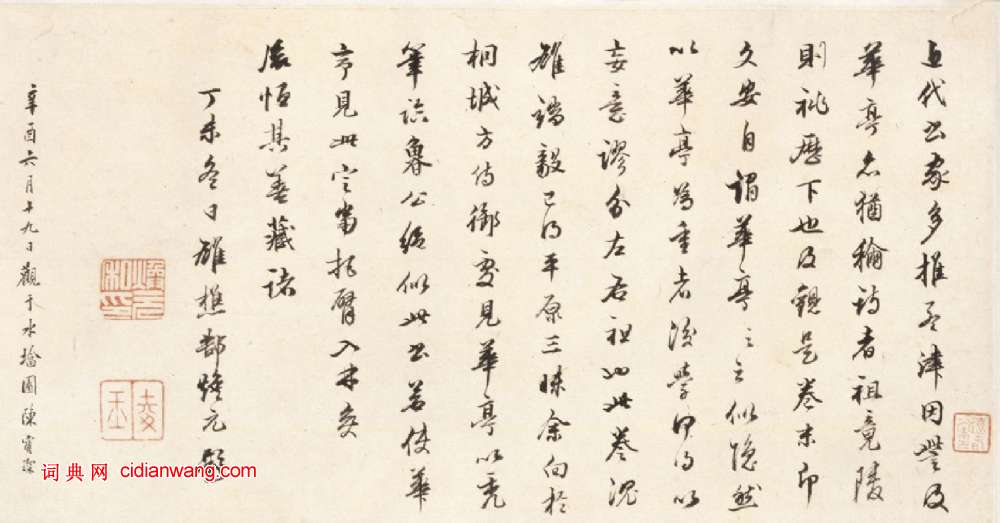 近代書家多推孟津因訾及
華亭亦猶論詩者祖竟陵
則祧歷下也及觀是卷末印
文安自謂華亭之言似隱然
以華亭為重者後學何得以
妄意謬分左右袒也此卷沉
雄端毅已得平原三昧余向於
桐城方侍御處見華亭以禿
筆臨魯公絕似此書若使華
亭見此定當把臂入林矣
恆其善藏諸
丁未冬日雄樵郜煥元題
辛酉六月十九日觀于水繪園陳
词典网 cidianwang.com